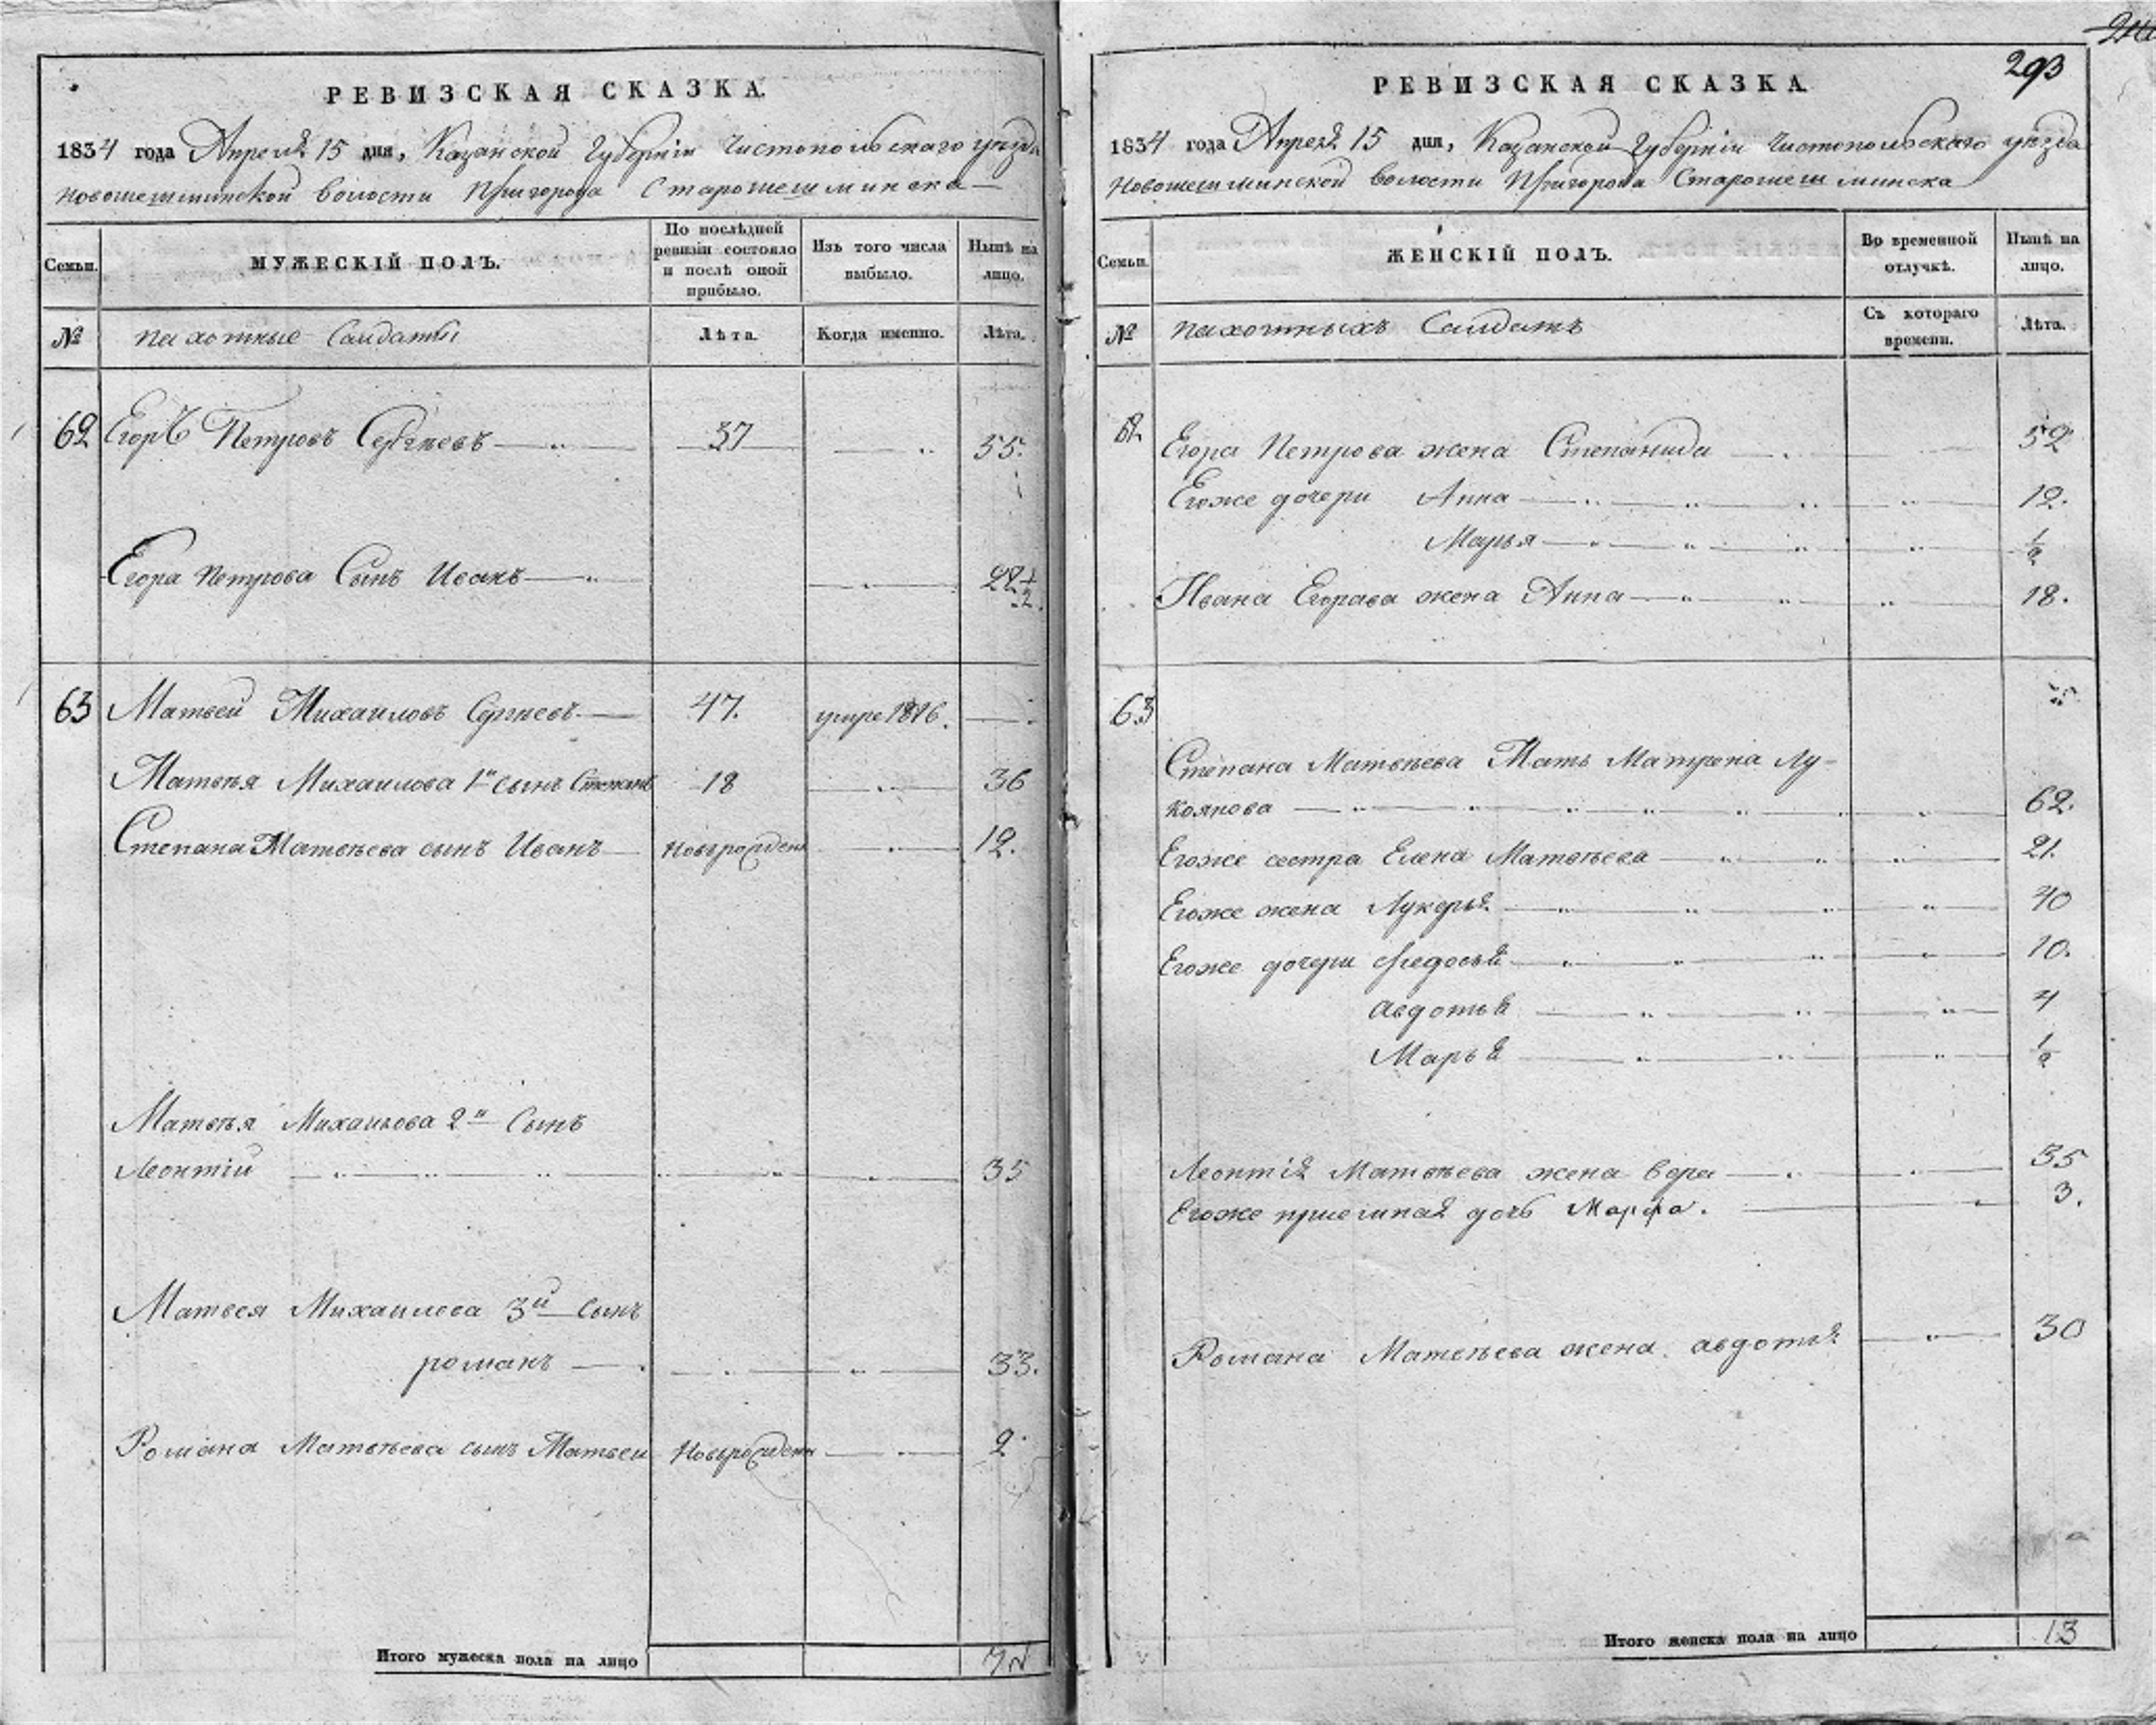 РЕВИЗСКАЯ СКАЗКА.
1834 года Апреля 15 дня, Казанской Губерніи Чистопольскаго уезда
Новошешминской волости Пригорода Старошешминска
Семьи.
МУЖЕСКІЙ ПОЛЪ.
По послѣдней ревизіи состояло и послѣ оной прибыло.
Изъ того числа выбыло.
Нынѣ на лицо.
№
пахотные Салдаты
Лѣта.
Когда именно.
Лѣта.
62 Егоръ Петровъ Сергѣевъ 37 55.
Егора Петрова Сынъ Иванъ 22 1/2.
63 Матвей Михаиловъ Сергѣевъ 47. умре 1816.
Матвѣя Михаилова 1й сынъ Степанъ 18 36
Степана Матвѣева сынъ Иванъ Новорожден 12.
Матвѣя Михаилова 2й Сынъ
Леонтій 35
Матвея Михаилова 3й сынъ
романъ 33.
Романа Матвѣева сынъ Матвеи Новорожден 2
Итого мужеска пола на лицо
293
РЕВИЗСКАЯ СКАЗКА
1834 года Апреля 15 дня, Казанской Губерніи Чистопольскаго уѣзда
Новошешминской волости Пригорода Старошешминска
Семьи.
ЖЕНСКІЙ ПОЛЪ.
Во временной отлучкѣ.
Нынѣ на лицо.
№
пахотныхъ Салдатъ
Съ котораго времени.
Лѣта.
62.
Егора Петрова жена Степанида 52
Егоже дочери Анна 12.
Марья 1/2
Ивана Егорава жена Анна 18.
63
Степана Матвѣева Мать Матрена Лу-
коянова 62.
Егоже сестра Елена Матвѣева 21.
Егоже жена Лукерья 40
Егоже дочери Федосья 10.
Авдотья 4
Марья 1/2
Леонтія Матвѣева жена Вера 35
Егоже приемная дочь Марфа. 3.
Романа Матвѣева жена авдотья 30
Итого женска пола на лицо 13